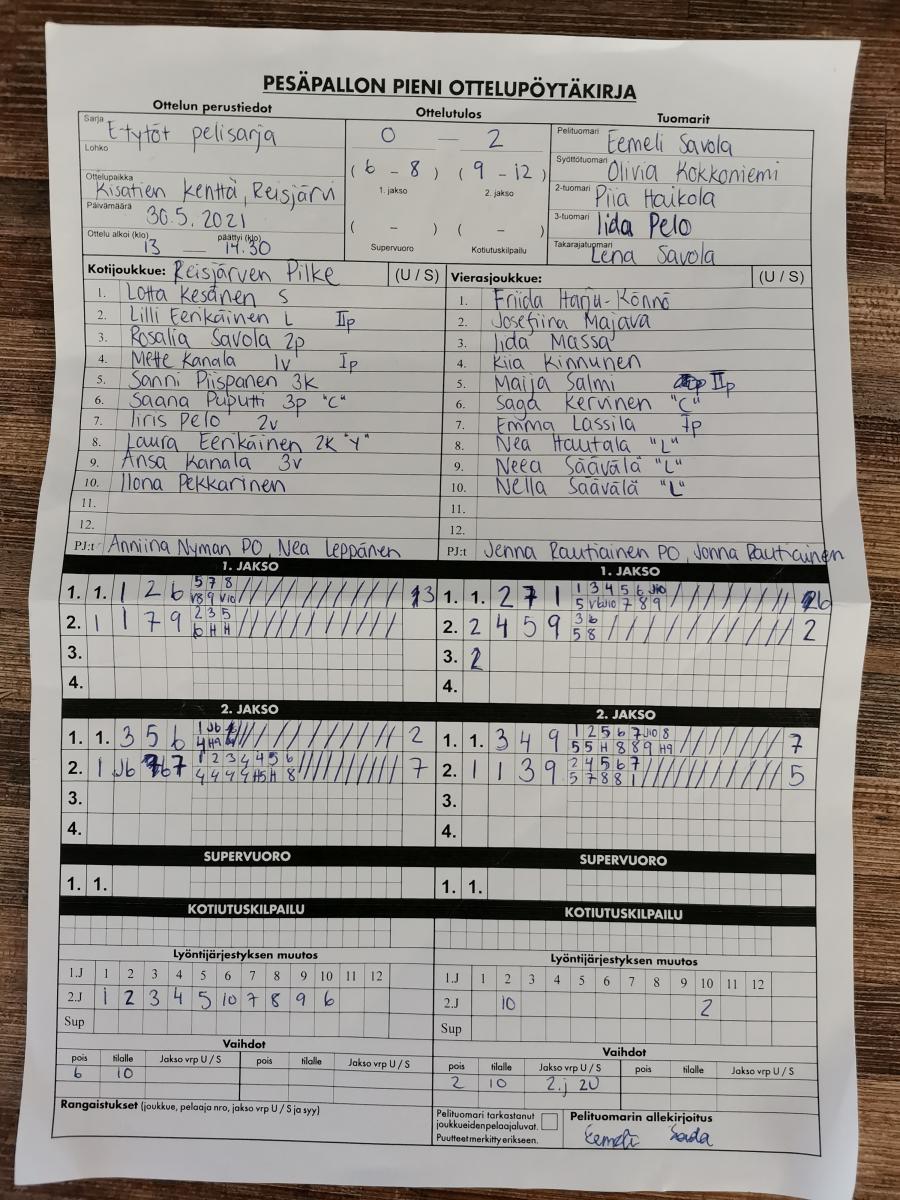 PESÄPALLON PIENI OTTELUPÖYTÄKIRJA
Ottelun perustiedot
Ottelutulos
Tuomarit
Sarja E-tytöt pelisarja
Lohko
Ottelupaikka Kisatien kenttä, Reisjärvi
Päivämäärä 30.5.2021
Ottelu alkoi (klo) 13 — päättyi (klo) 14.30
0 — 2
( 6 - 8 ) ( 9 - 12 )
1. jakso 2. jakso
( - ) ( - )
Supervuoro Kotiutuskilpailu
Pelituomari Eemeli Savola
Syöttötuomari Olivia Kokkoniemi
2-tuomari Piia Haikola
3-tuomari Iida Pelo
Takarajatuomari Lena Savola
Kotijoukkue: Reisjärven Pilke (U / S)
1. Lotta Kesänen S
2. Lilli Eerikäinen L IIp
3. Rosalia Savola 2p
4. Mette Kanala 1v Ip
5. Sanni Piispanen 3K
6. Saana Puputti 3p "C"
7. Iiris Pelo 2v
8. Laura Eerikäinen 2K "Y"
9. Ansa Kanala 3v
10. Ilona Pekkarinen
11.
12.
PJ:t Anniina Nyman PO, Nea Leppänen
Vierasjoukkue: (U / S)
1. Friida Harju-Könnö
2. Josefiina Majava
3. Iida Massa
4. Kiia Kinnunen
5. Maija Salmi IIp
6. Saga Kervinen "C"
7. Emma Lassila Ip
8. Nea Hautala "L"
9. Neea Säävälä "L"
10. Nella Säävälä "L"
11.
12.
PJ:t Jenna Rautiainen PO, Jonna Rautiainen
1. JAKSO
1. 1. 1 2 6 5 7 8
V8 9 V10
2. 1 1 7 9 2 3 5
6 H H
3.
4.
1. JAKSO
1. 1. 2 7 1 1 3 4 5 6 J10
5 V6 J10 7 8 9
2. 2 4 5 9 3 6 2
5 8
3. 2
4.
2. JAKSO
1. 1. 3 5 6 1 J6 2
4 H9
2. 1 J6 7 1 2 3 4 4 5 6 7
4 4 4 4 H5 H 8
3.
4.
2. JAKSO
1. 1. 3 4 9 1 2 5 6 7 J10 8 7
5 5 H 8 8 9 H9
2. 1 1 3 9 2 4 5 6 7 5
5 7 8 8 1
3.
4.
SUPERVUORO
1. 1.
SUPERVUORO
1. 1.
KOTIUTUSKILPAILU
KOTIUTUSKILPAILU
Lyöntijärjestyksen muutos
1.J 1 2 3 4 5 6 7 8 9 10 11 12
2.J 1 2 3 4 5 10 7 8 9 6
Sup
Lyöntijärjestyksen muutos
1.J 1 2 3 4 5 6 7 8 9 10 11 12
2.J 10 2
Sup
Vaihdot
pois tilalle Jakso vrp U / S pois tilalle Jakso vrp U / S
6 10
Vaihdot
pois tilalle Jakso vrp U / S pois tilalle Jakso vrp U / S
2 10 2.j 2U
Rangaistukset (joukkue, pelaaja nro, jakso vrp U / S ja syy)
Pelituomari tarkastanut
joukkueiden pelaajaluvat.
Puutteet merkitty erikseen.
Pelituomarin allekirjoitus
Eemeli